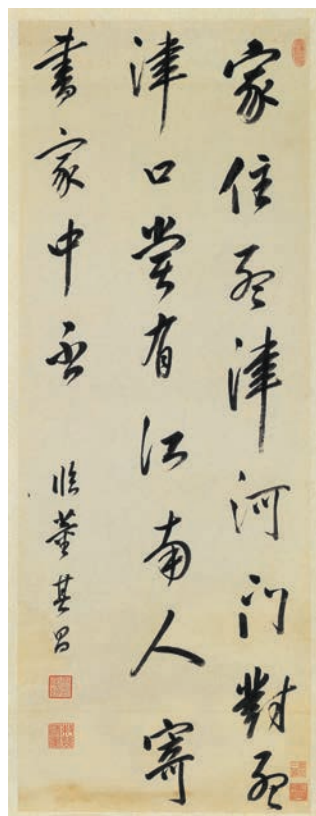 家住孟津河门對孟
津口嘗有江南人寄
書家中否
临董其昌